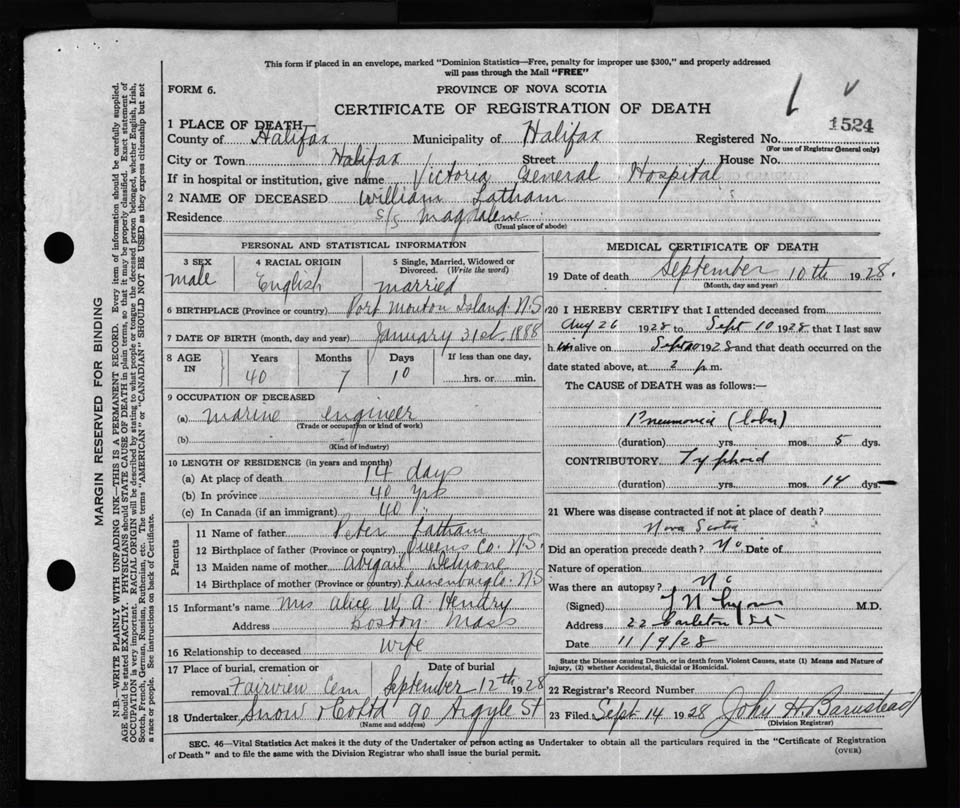 This form if placed in an envelope, marked "Dominion Statistics—Free, penalty for improper use $300," and properly addressed
will pass through the Mail "FREE"
FORM 6.
PROVINCE OF NOVA SCOTIA
CERTIFICATE OF REGISTRATION OF DEATH
1524
1 PLACE OF DEATH—
County of Halifax Municipality of Halifax Registered No.
(For use of Registrar General only)
City or Town Halifax Street House No.
If in hospital or institution, give name Victoria General Hospital
2 NAME OF DECEASED William Latham
Residence S/S Magdalene
(Usual place of abode)
PERSONAL AND STATISTICAL INFORMATION
3 SEX 4 RACIAL ORIGIN 5 Single, Married, Widowed or
Divorced. (Write the word)
male English married
6 BIRTHPLACE (Province or country) Port Mouton Island N.S
7 DATE OF BIRTH (month, day and year) January 31st. 1888
8 AGE IN Years Months Days If less than one day,
40 7 10 hrs. or min.
9 OCCUPATION OF DECEASED
(a) marine engineer
(Trade or occupation or kind of work)
(b)
(Kind of industry)
10 LENGTH OF RESIDENCE (in years and months)
(a) At place of death 14 days
(b) In province 40 yrs
(c) In Canada (if an immigrant) 40 "
Parents
11 Name of father Peter Latham
12 Birthplace of father (Province or country) Queens Co. N.S.
13 Maiden name of mother Abigail
14 Birthplace of mother (Province or country) Lunenburg Co. N.S
15 Informant's name Mrs Alice W. A. Hendry
Address Boston Mass
16 Relationship to deceased wife
17 Place of burial, cremation or Date of burial
removal Fairview Cem September 12th 1928
18 Undertaker Snow & Co Ltd 90 Argyle St
(Name and address)
MEDICAL CERTIFICATE OF DEATH
19 Date of death September 10th 1928.
(Month, day and year)
20 I HEREBY CERTIFY that I attended deceased from
Aug 26 1928 to Sept 10 1928 that I last saw
him alive on Sept 10 1928 and that death occurred on the
date stated above, at 2 p.m.
The CAUSE of DEATH was as follows:—
Pneumonia (lobar)
(duration) yrs. mos. 5 dys.
CONTRIBUTORY Typhoid
(duration) yrs. mos. 14 dys.
21 Where was disease contracted if not at place of death?
Nova Scotia
Did an operation precede death? No Date of
Nature of operation
Was there an autopsy? No
(Signed) M.D.
Address 22 Carleton St
Date 11/9/28
State the Disease causing Death, or in death from Violent Causes, state (1) Means and Nature of
Injury, (2) whether Accidental, Suicidal or Homicidal.
22 Registrar's Record Number
23 Filed Sept 14 1928 John H. Barnstead
(Division Registrar)
SEC. 46—Vital Statistics Act makes it the duty of the Undertaker or person acting as Undertaker to obtain all the particulars required in the "Certificate of Registration
of Death" and to file the same with the Division Registrar who shall issue the burial permit.
(OVER)
MARGIN RESERVED FOR BINDING
N.B.—WRITE PLAINLY WITH UNFADING INK—THIS IS A PERMANENT RECORD. Every item of information should be carefully supplied.
AGE should be stated EXACTLY. PHYSICIANS should STATE CAUSE OF DEATH in plain terms, so that it may be properly classified. Exact statement of
OCCUPATION is very important. RACIAL ORIGIN will be described by stating to what people or tongue the deceased person belonged, whether English, Irish,
Scotch, French, German, Russian, Ruthenian, etc. The terms "AMERICAN" or "CANADIAN" SHOULD NOT BE USED as they express citizenship but not
a race or people. See instructions on back of Certificate.